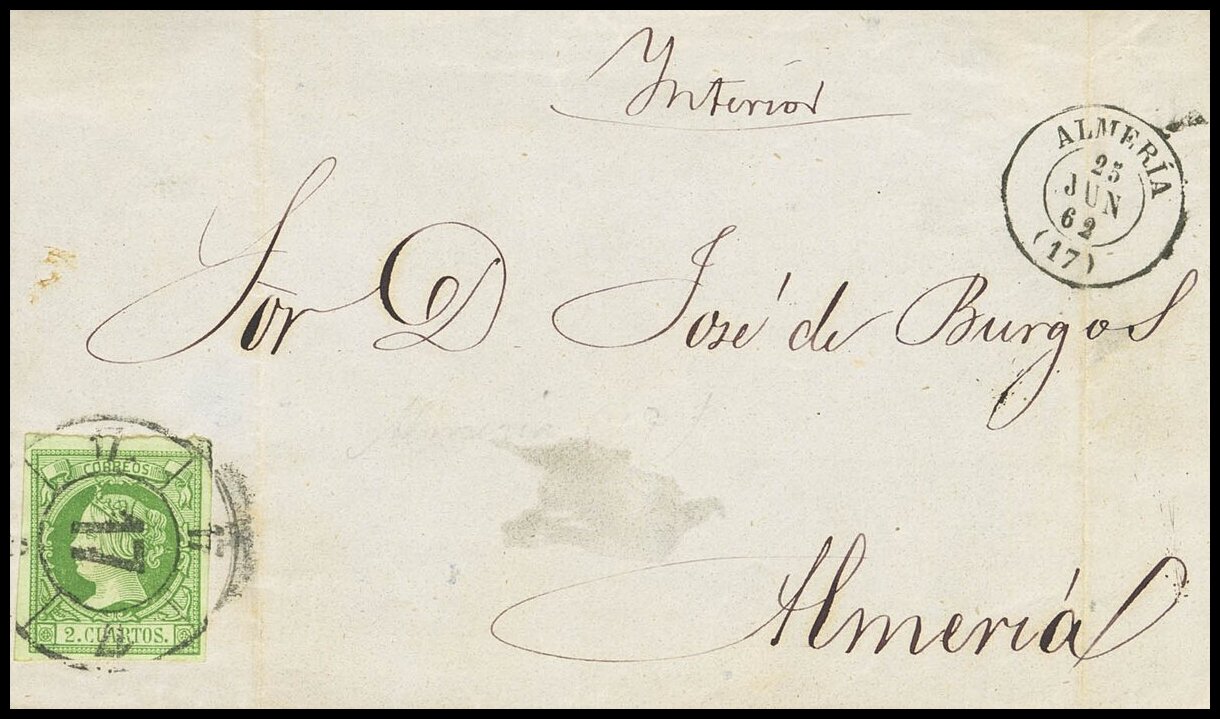 Ynterior
ALMERÍA
25
JUN
62
(17)
Sor D José de Burgos
CORREOS
17
17
17
2. CUARTOS.
Almería